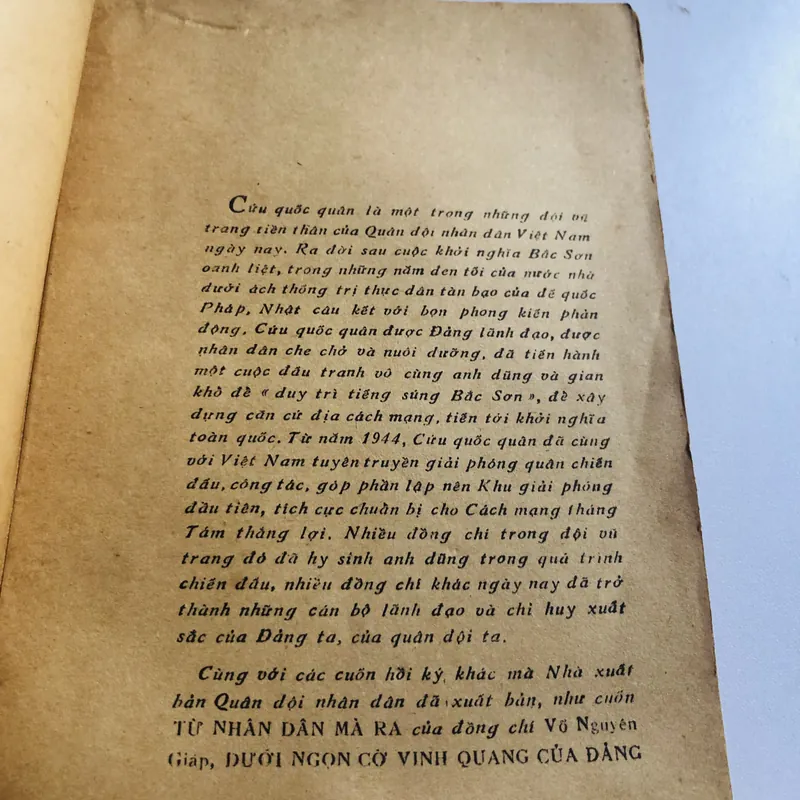 Cứu quốc quân là một trong những đội vũ
trang tiền thân của Quân đội nhân dân Việt Nam
ngày nay. Ra đời sau cuộc khởi nghĩa Bắc Sơn
oanh liệt, trong những năm đen tối của nước nhà
dưới ách thống trị thực dân tàn bạo của đế quốc
Pháp, Nhật câu kết với bọn phong kiến phản
động, Cứu quốc quân được Đảng lãnh đạo, được
nhân dân che chở và nuôi dưỡng, đã tiến hành
một cuộc đấu tranh vô cùng anh dũng và gian
khổ để « duy trì tiếng súng Bắc Sơn », để xây
dựng căn cứ địa cách mạng, tiến tới khởi nghĩa
toàn quốc. Từ năm 1944, Cứu quốc quân đã cùng
với Việt Nam tuyên truyền giải phóng quân chiến
đấu, công tác, góp phần lập nên Khu giải phóng
đầu tiên, tích cực chuẩn bị cho Cách mạng tháng
Tám thắng lợi. Nhiều đồng chí trong đội vũ
trang đó đã hy sinh anh dũng trong quá trình
chiến đấu, nhiều đồng chí khác ngày nay đã trở
thành những cán bộ lãnh đạo và chỉ huy xuất
sắc của Đảng ta, của quân đội ta.
Cùng với các cuốn hồi ký khác mà Nhà xuất
bản Quân đội nhân dân đã xuất bản, như cuốn
TỪ NHÂN DÂN MÀ RA của đồng chí Võ Nguyên
Giáp, DƯỚI NGỌN CỜ VINH QUANG CỦA ĐẢNG